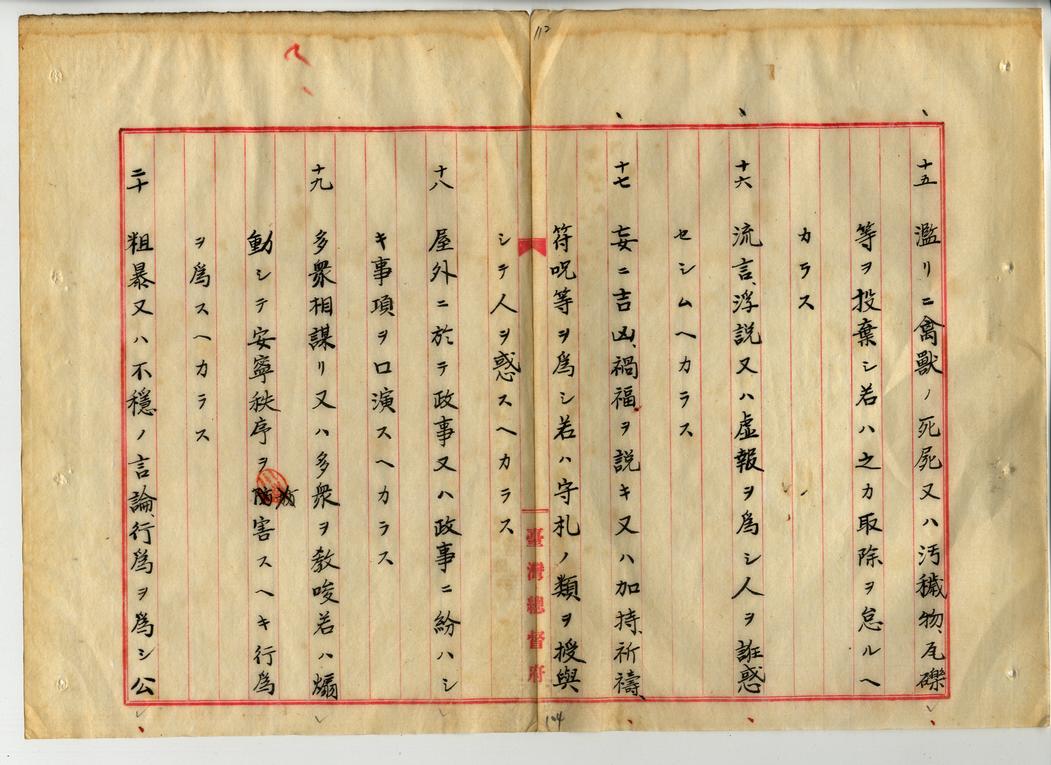 112
十五 濫リニ禽獸ノ死屍又ハ汚穢物、瓦礫
等ヲ投棄シ若ハ之カ取除ヲ怠ルヘ
カラス
十六 流言、浮説又ハ虚報ヲ爲シ人ヲ誑惑
セシムヘカラス
十七 妄ニ吉凶、禍福ヲ説キ又ハ加持、祈禱、
符呪等ヲ爲シ若ハ守札ノ類ヲ授與
シテ人ヲ惑スヘカラス
臺灣總督府
十八 屋外ニ於テ政事又ハ政事ニ紛ハシ
キ事項ヲ口演スヘカラス
十九 多衆相謀リ又ハ多衆ヲ敎唆若ハ煽
動シテ安寧秩序ヲ害スヘキ行爲
ヲ爲スヘカラス
二十 粗暴又ハ不穩ノ言論、行爲ヲ爲シ公
104